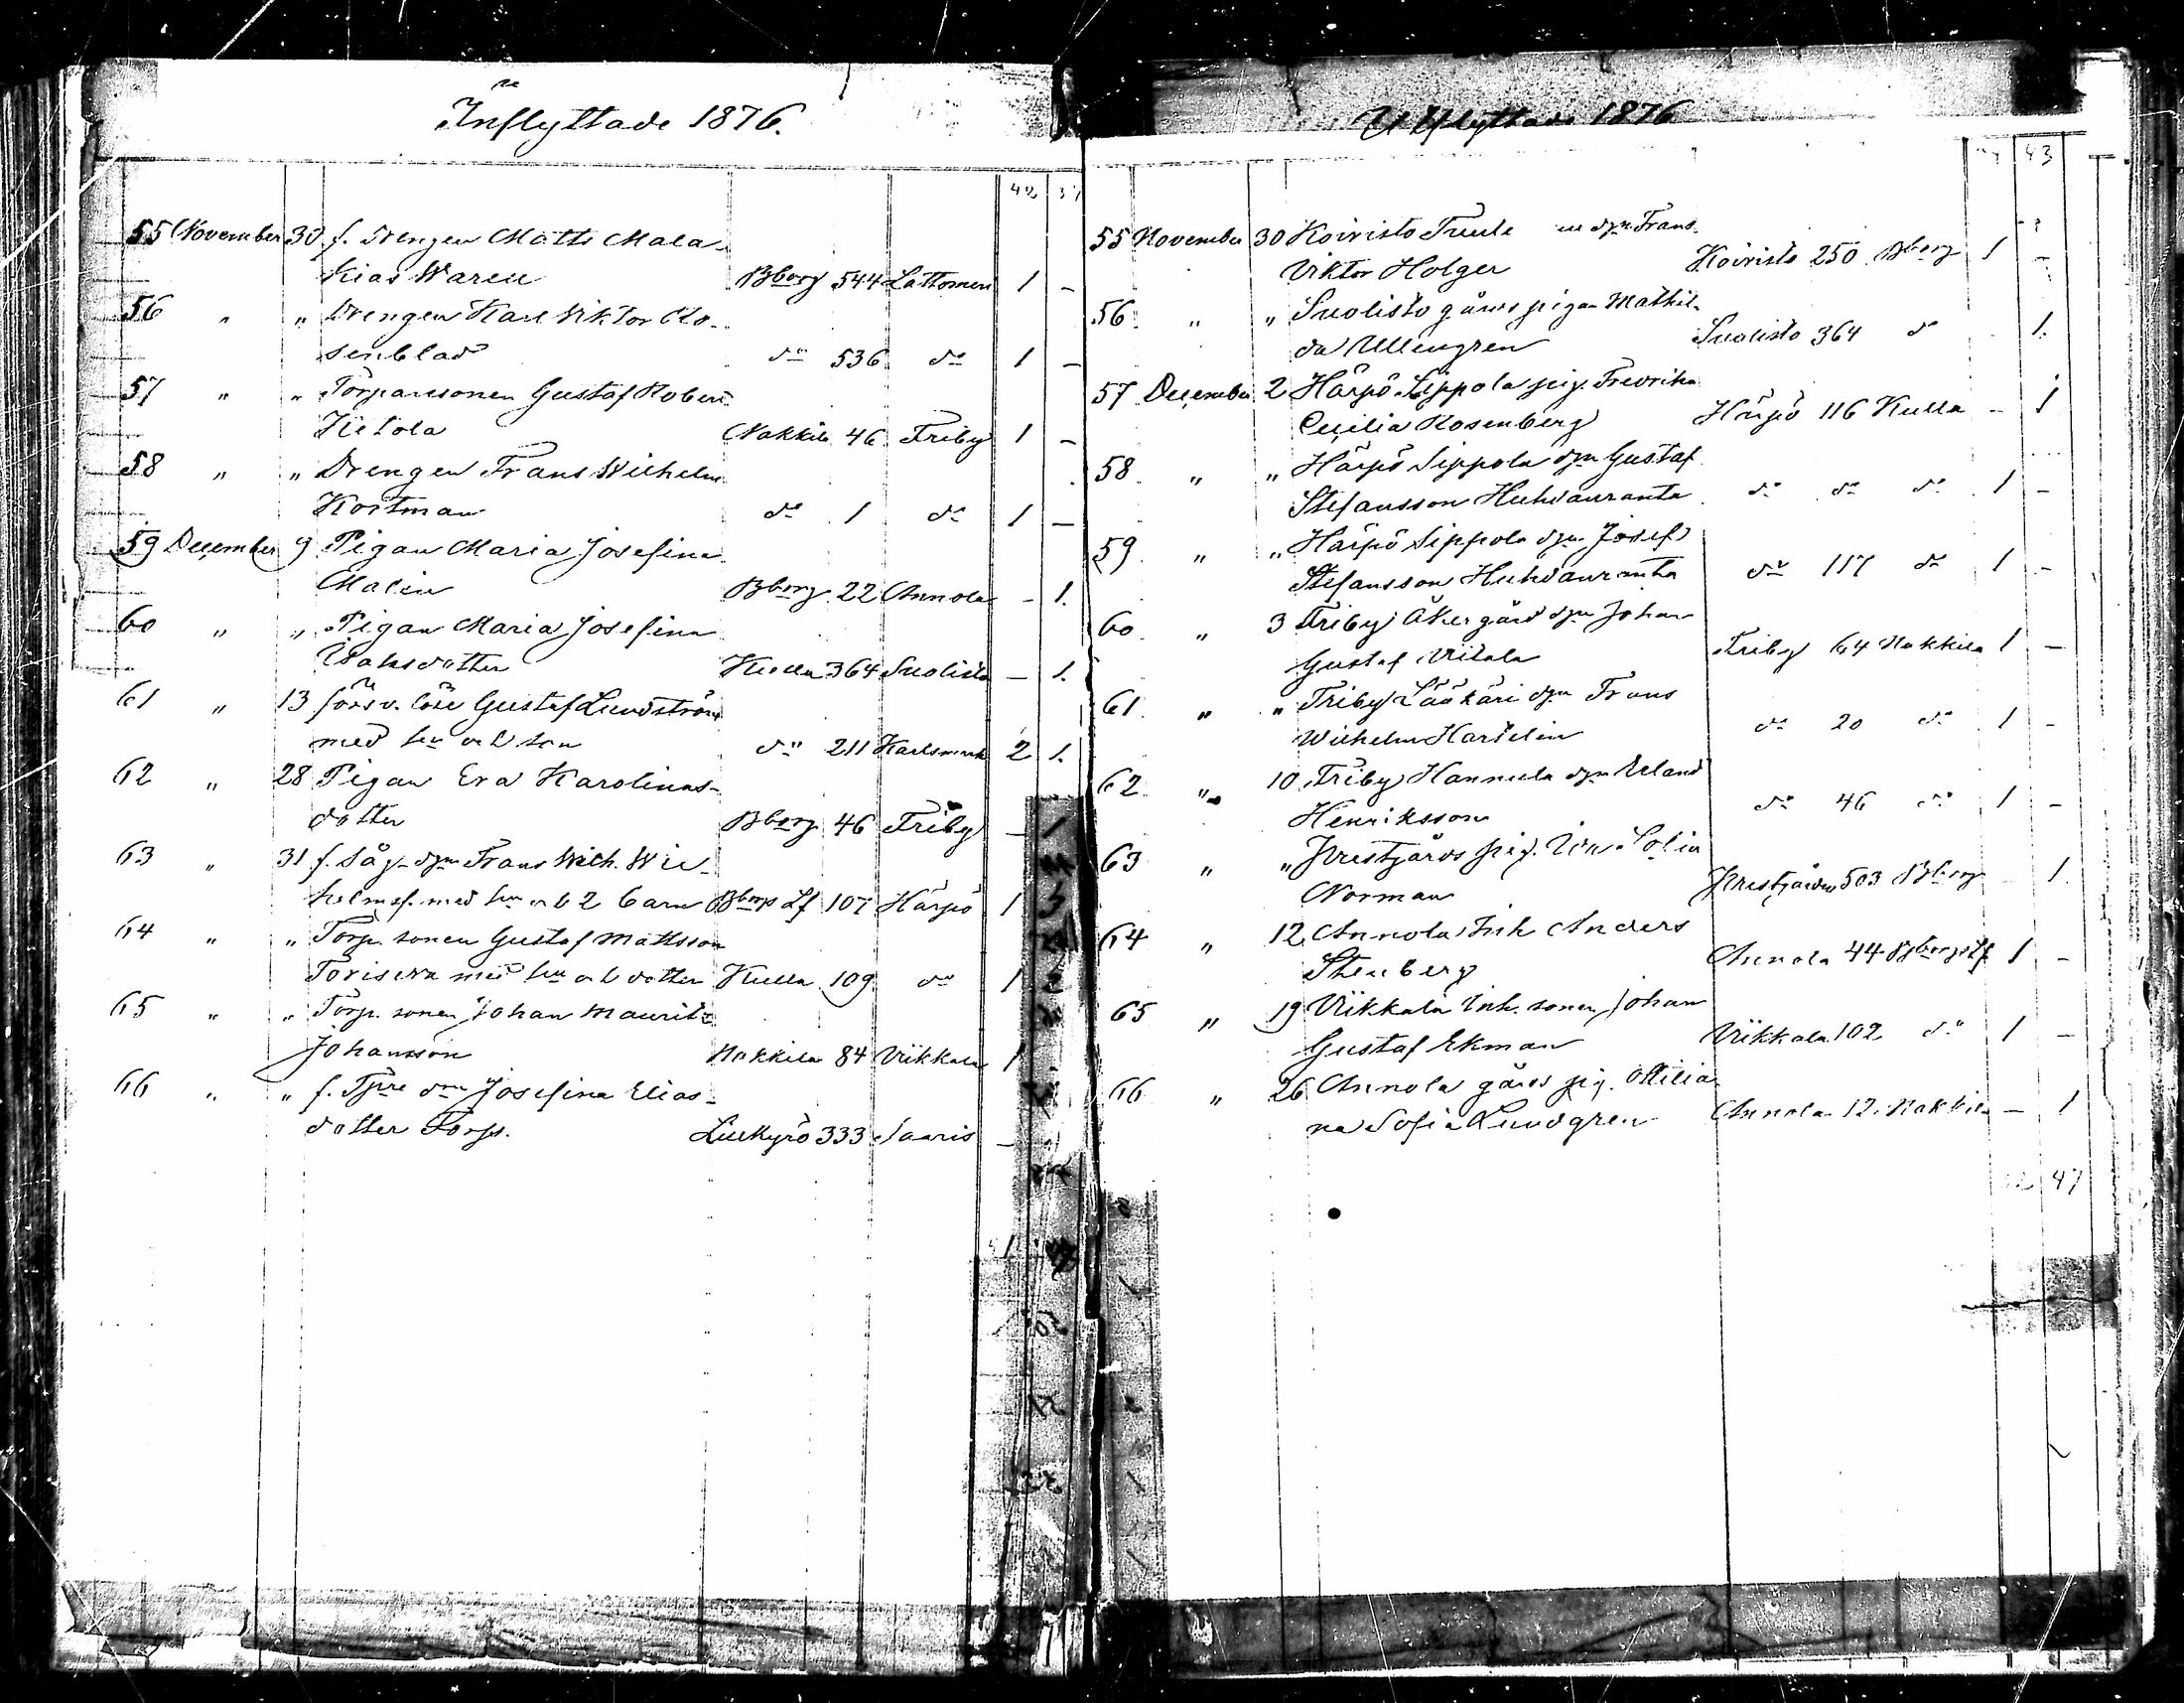 Inflyttade 1876.
42 37
55 November 30 f. Drengen Matts Mala-
kias Waren Bborg 544 Lattomeri 1 -
56 " " Drengen Karl Viktor Ro-
senblad do 536 do 1 -
57 " " Torparesonen Gustaf Robert
Ketola Nakkila 46 Friby 1 -
58 " " Drengen Frans Wilhelm
Kortman do 1 do 1 -
59 December 9 Pigan Maria Josefina
Malin Bborg 22 Annola - 1.
60 " " Pigan Maria Josefina
Isaksdotter Kulla 364 Suolisto - 1.
61 " 13 försv. löse Gustaf Lundström
med hu och son do 211 Karlsmark 2 1.
62 " 28 Pigan Eva Karolinas-
dotter Bborg 46 Friby - 1
63 " 31 f. Såg. dgn Frans Wilh. Wil-
helmsf. med hu och 2 barn Bborgs Lf 107 Härpö 1 3
64 " " Torp. sonen Gustaf Mattsson
med hu och dotter Kulla 109 do 1 2
65 " " Torp. sonen Johan Maurits
Johansson Nakkila 84 Viikkala 1
66 " " f. Josefina Elias-
dotter Torp. 333 Saaris -
Utflyttade 1876
43
55 November 30 Koivisto dgn Frans
Viktor Holger Koivisto 250 Bborg 1 -
56 " " Suolisto gårds pigan Mathil-
da Ullengren Suolisto 364 do - 1.
57 December 2 Härpö Sippola pig. Fredrika
Cecilia Rosenberg Härpö 116 Kulla - 1
58 " " Härpö Sippola dgn Gustaf
Stefansson Huhdanranta do do do 1 -
59 " " Härpö Sippola dgn Josef
Stefansson Huhdanranta do 117 do 1 -
60 " 3 Friby Åkergård dgn Johan
Gustaf Viitala Friby 64 Nakkila 1 -
61 " " Friby Lääkäri dgn Frans
Wilhelm Hartelin do 20 do 1 -
62 " 10 Friby Hannula dgn Erland
Henriksson do 46 do 1 -
63 " " Prestgårds pig. Sofia
Norman Prestgården 503 Bborg 1
64 " 12 Annola Inh Anders
Stenberg Annola 44 Bborgs Lf 1 -
65 " 19 Viikkala Inh. sonen Johan
Gustaf Ekman Viikkala 102 do 1 -
66 " 26 Annola gårds pig. Ottilia-
na Sofia Lundgren Annola 12. Nakkila - 1
47